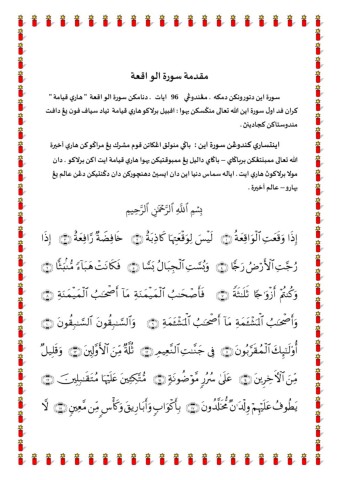 مقدمة سورة الواقعة
سورة اين دتورونكن دمكه . مڠندوڠي 96 ايات . دنامكن سورة الو اقعة " هاري قيامة "
كران قد اول سورة اين الله تعالى منڬسكن بهوا : اڤبيل برلاكو هاري قيامة تياد سياف ڤون يڠ داڤت
مندوستاكن كجادينڽ .
اينتيساري كندوڠن سورة اين : باڬي منولق اڠݢاڤن قوم مشرك يڠ مراݢوكن هاري أخيرة
الله تعالى ممبنتڠكن برباݢاي – باݢاي دليل يڠ ممبوقتيكن بهوا هاري قيامة ايت اكن برلاكو . دان
مولا برلاكوڽ هاري ايت . اياله سماس دنيا اين دان ايسيڽ دهنچوركن دان دݢنتيكن دڠن عالم يڠ
بهارو– عالم أخيرة .
بِسْمِ ٱللَّهِ ٱلرَّحْمَٰنِ ٱلرَّحِيمِ
إِذَا وَقَعَتِ ٱلْوَاقِعَةُ ۝١ لَيْسَ لِوَقْعَتِهَا كَاذِبَةٌ ۝٢ خَافِضَةٌ رَّافِعَةٌ ۝٣ إِذَا
رُجَّتِ ٱلْأَرْضُ رَجًّا ۝٤ وَبُسَّتِ ٱلْجِبَالُ بَسًّا ۝٥ فَكَانَتْ هَبَآءً مُّنۢبَثًّا ۝٦
وَكُنتُمْ أَزْوَٰجًا ثَلَٰثَةً ۝٧ فَأَصْحَٰبُ ٱلْمَيْمَنَةِ مَآ أَصْحَٰبُ ٱلْمَيْمَنَةِ ۝٨
وَأَصْحَٰبُ ٱلْمَشْـَٔمَةِ مَآ أَصْحَٰبُ ٱلْمَشْـَٔمَةِ ۝٩ وَٱلسَّٰبِقُونَ ٱلسَّٰبِقُونَ ۝١٠
أُو۟لَٰٓئِكَ ٱلْمُقَرَّبُونَ ۝١١ فِى جَنَّٰتِ ٱلنَّعِيمِ ۝١٢ ثُلَّةٌ مِّنَ ٱلْأَوَّلِينَ ۝١٣ وَقَلِيلٌ
مِّنَ ٱلْأٓخِرِينَ ۝١٤ عَلَىٰ سُرُرٍ مَّوْضُونَةٍ ۝١٥ مُّتَّكِـِٔينَ عَلَيْهَا مُتَقَٰبِلِينَ ۝١٦
يَطُوفُ عَلَيْهِمْ وِلْدَٰنٌ مُّخَلَّدُونَ ۝١٧ بِأَكْوَابٍ وَأَبَارِيقَ وَكَأْسٍ مِّن مَّعِينٍ ۝١٨ لَّا